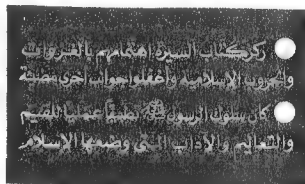 ركز كتاب السيرة اهتمامهم بالغزوات
والحروب الإسلامية واغفلوا جوانب اخرى مضيئة
كان سلوك الرسول ﷺ تطبيقا عمليا للقيم
والتعاليم والآداب التي وضعها الإسلام